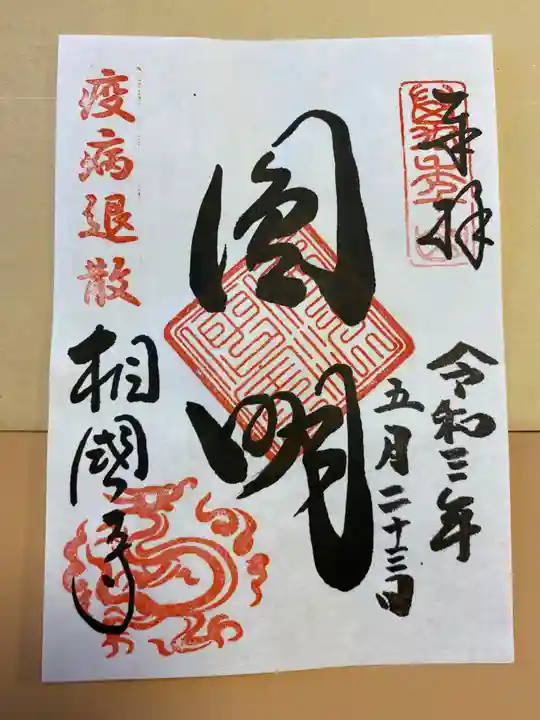 奉拝
令和三年
五月二十三日
圓明
疫病退散
相國寺